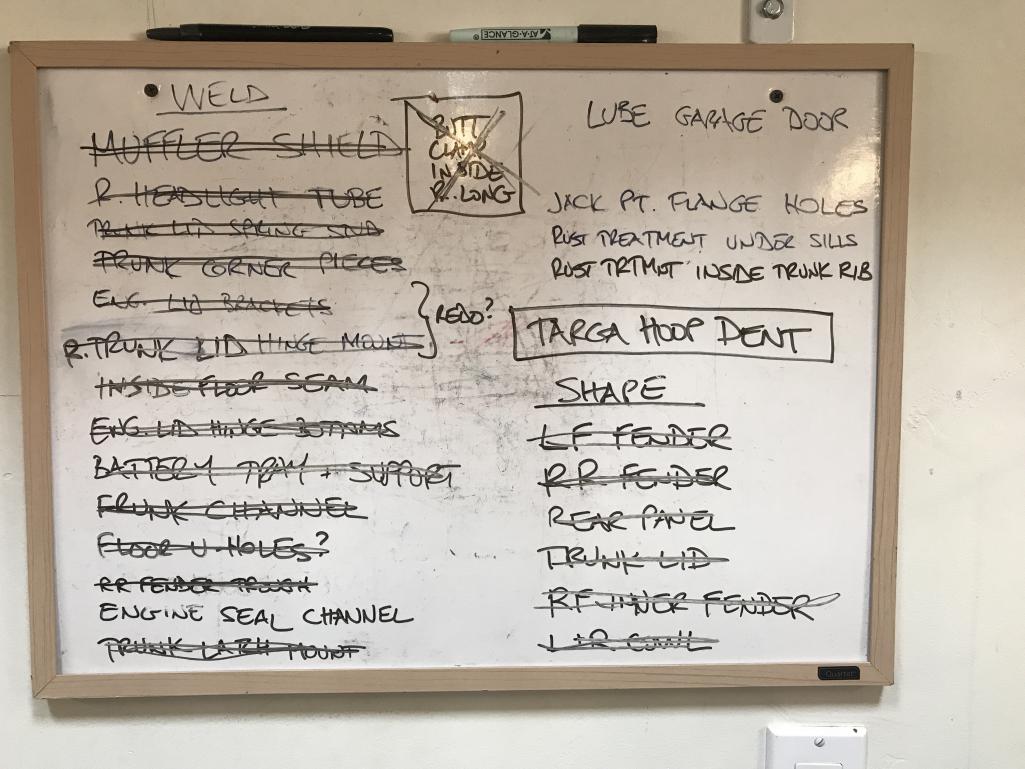 AT-A-GLANCE
WELD
MUFFLER SHIELD
R. HEADLIGHT TUBE
TRUNK LID SPRING STUD
TRUNK CORNER PIECES
ENG. LID BRACKETS
R. TRUNK LID HINGE MOUNT
REDO?
INSIDE FLOOR SEAM
ENG. LID HINGE BOTTOMS
BATTERY TRAY + SUPPORT
FRUNK CHANNEL
FLOOR U-HOLES?
RR FENDER TROUGH
ENGINE SEAL CHANNEL
TRUNK LATCH MOUNT
BUTT
CLAMP
INSIDE
R. LONG
LUBE GARAGE DOOR
JACK PT. FLANGE HOLES
RUST TREATMENT UNDER SILLS
RUST TRTMNT INSIDE TRUNK RIB
TARGA HOOP DENT
SHAPE
LF FENDER
RR FENDER
REAR PANEL
TRUNK LID
RF INNER FENDER
L+R COWL
Quartet